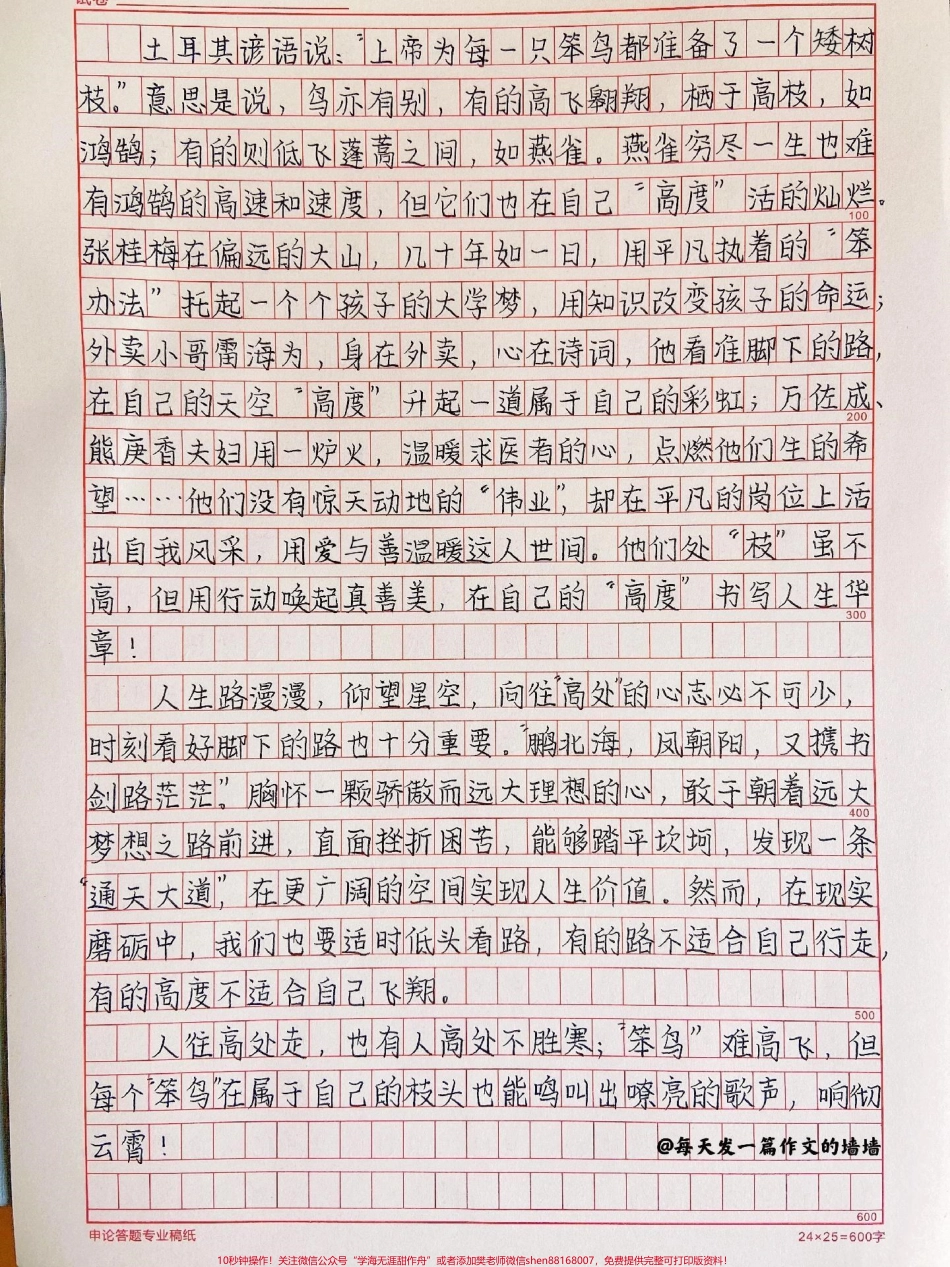 试卷
土耳其谚语说:“上帝为每一只笨鸟都准备了一个矮树
枝。”意思是说，鸟亦有别，有的高飞翱翔，栖于高枝，如
鸿鹄；有的则低飞蓬蒿之间，如燕雀。燕雀穷尽一生也难
有鸿鹄的高速和速度，但它们也在自己“高度”活的灿烂。
100
张桂梅在偏远的大山，几十年如一日，用平凡执着的“笨
办法”托起一个个孩子的大学梦，用知识改变孩子的命运；
外卖小哥雷海为，身在外卖，心在诗词，他看准脚下的路，
在自己的天空“高度”升起一道属于自己的彩虹；万佐成、
200
熊庚香夫妇用一炉火，温暖求医者的心，点燃他们生的希
望……他们没有惊天动地的“伟业”，却在平凡的岗位上活
出自我风采，用爱与善温暖这人世间。他们处“枝”虽不
高，但用行动唤起真善美，在自己的“高度”书写人生华
300
章！
人生路漫漫，仰望星空，向往“高处”的心志必不可少，
时刻看好脚下的路也十分重要。“鹏北海，凤朝阳，又携书
剑路茫茫”。胸怀一颗骄傲而远大理想的心，敢于朝着远大
400
梦想之路前进，直面挫折困苦，能够踏平坎坷，发现一条
“通天大道”，在更广阔的空间实现人生价值。然而，在现实
磨砺中，我们也要适时低头看路，有的路不适合自己行走，
有的高度不适合自己飞翔。
500
人往高处走，也有人高处不胜寒；“笨鸟”难高飞，但
每个“笨鸟”在属于自己的枝头也能鸣叫出嘹亮的歌声，响彻
云霄！
@每天发一篇作文的墙墙
600
申论答题专业稿纸 24×25=600字
10秒钟操作！关注微信公众号“学海无涯甜作舟”或者添加樊老师微信shen88168007，免费提供完整可打印版资料！